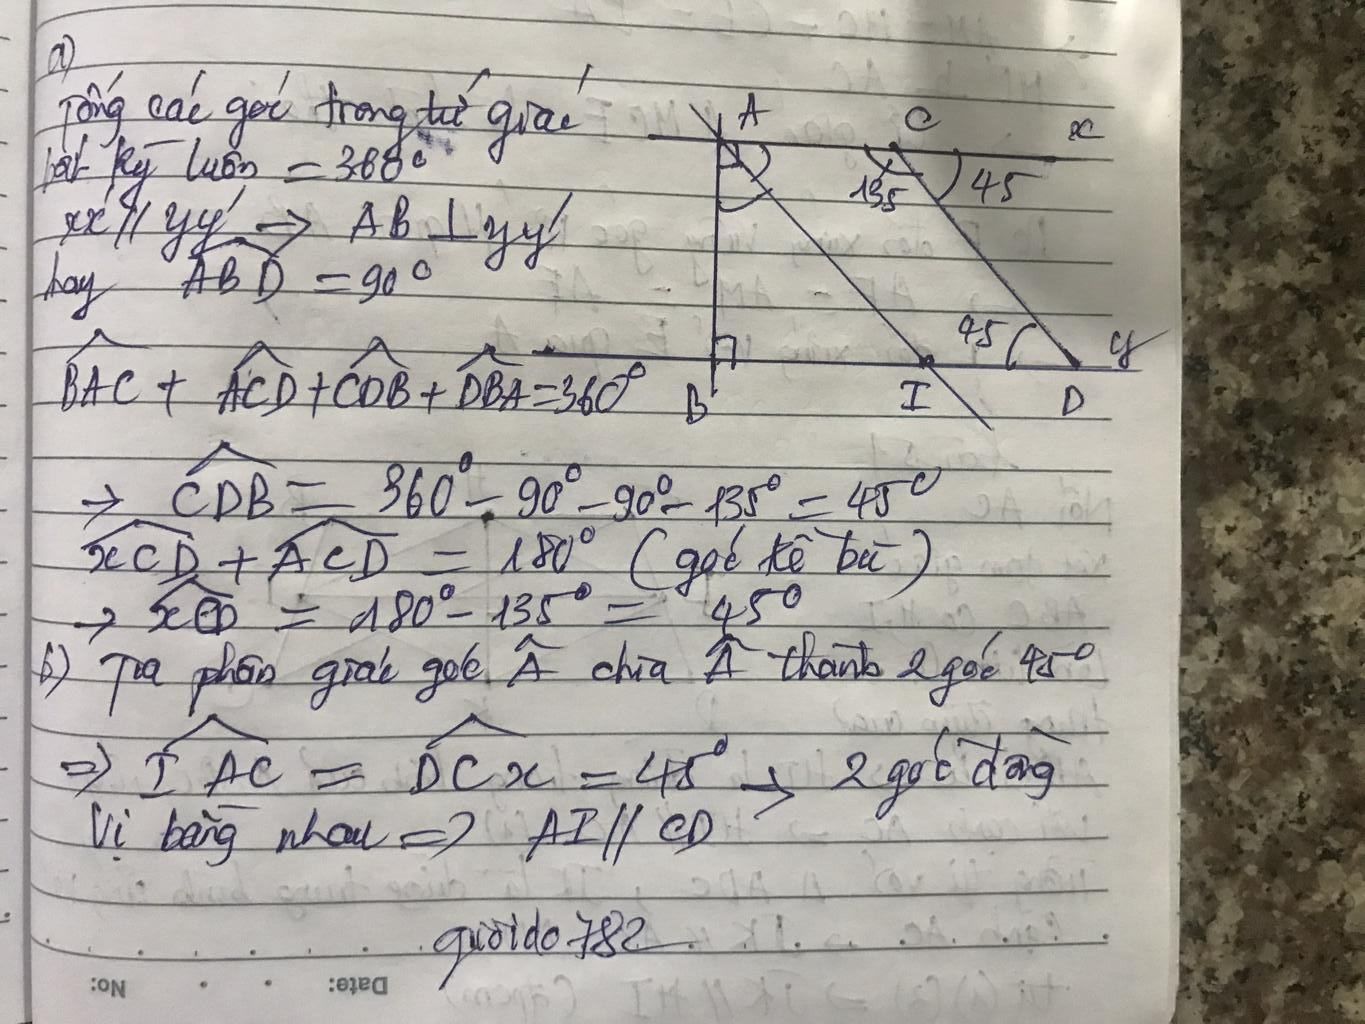 a)
Tổng các góc trong tứ giác
bất kỳ luôn = 360°
xx'//yy' → AB ⊥ yy'
hay ABD = 90°
BAC + ACD + CDB + DBA = 360°
→ CDB = 360° - 90° - 90° - 135° = 45°
xCD + ACD = 180° (góc kề bù)
→ xCD = 180° - 135° = 45°
b) Tia phân giác góc Â chia Â thành 2 góc 45°
⇒ IAC = DCx = 45° → 2 góc đồng
Vị bằng nhau ⇒ AI // CD
guoido782
A C x
135 45
45 y
B I D
No: Date: